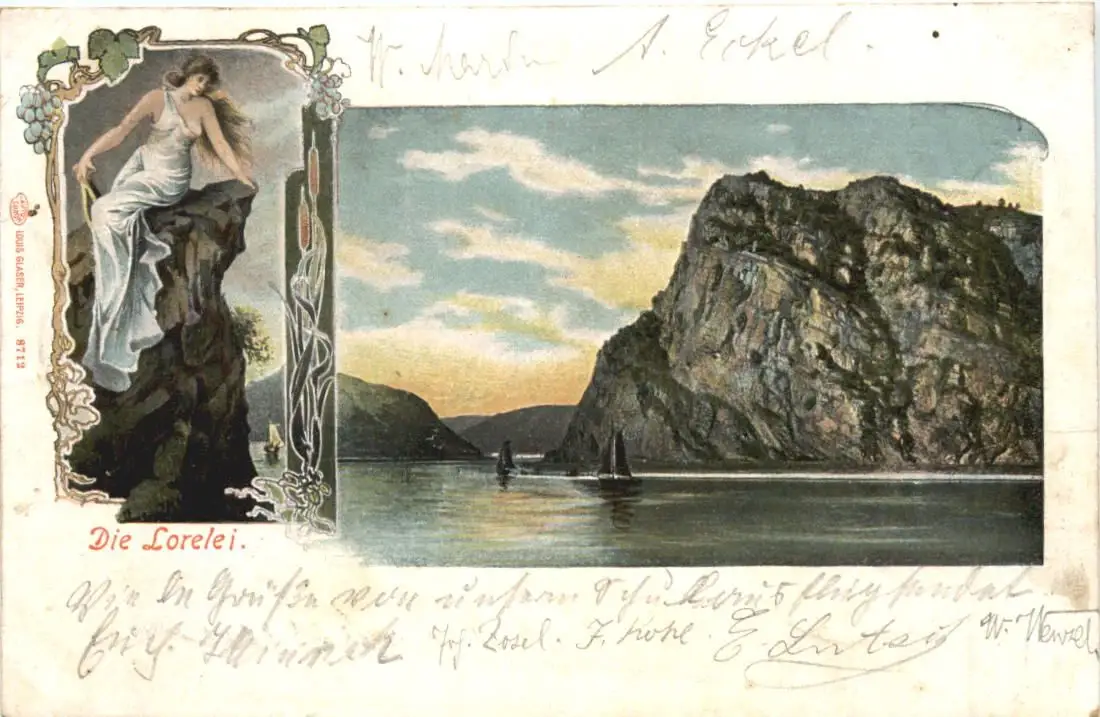 W. A. Eckel.
LOUIS GLASER, LEIPZIG. 8712
Die Lorelei.
Viele Grüße von unserm Schulausflug sendet
Euch. Joh. Zosel. J. Kohl. E. Lutz W. Wenzel